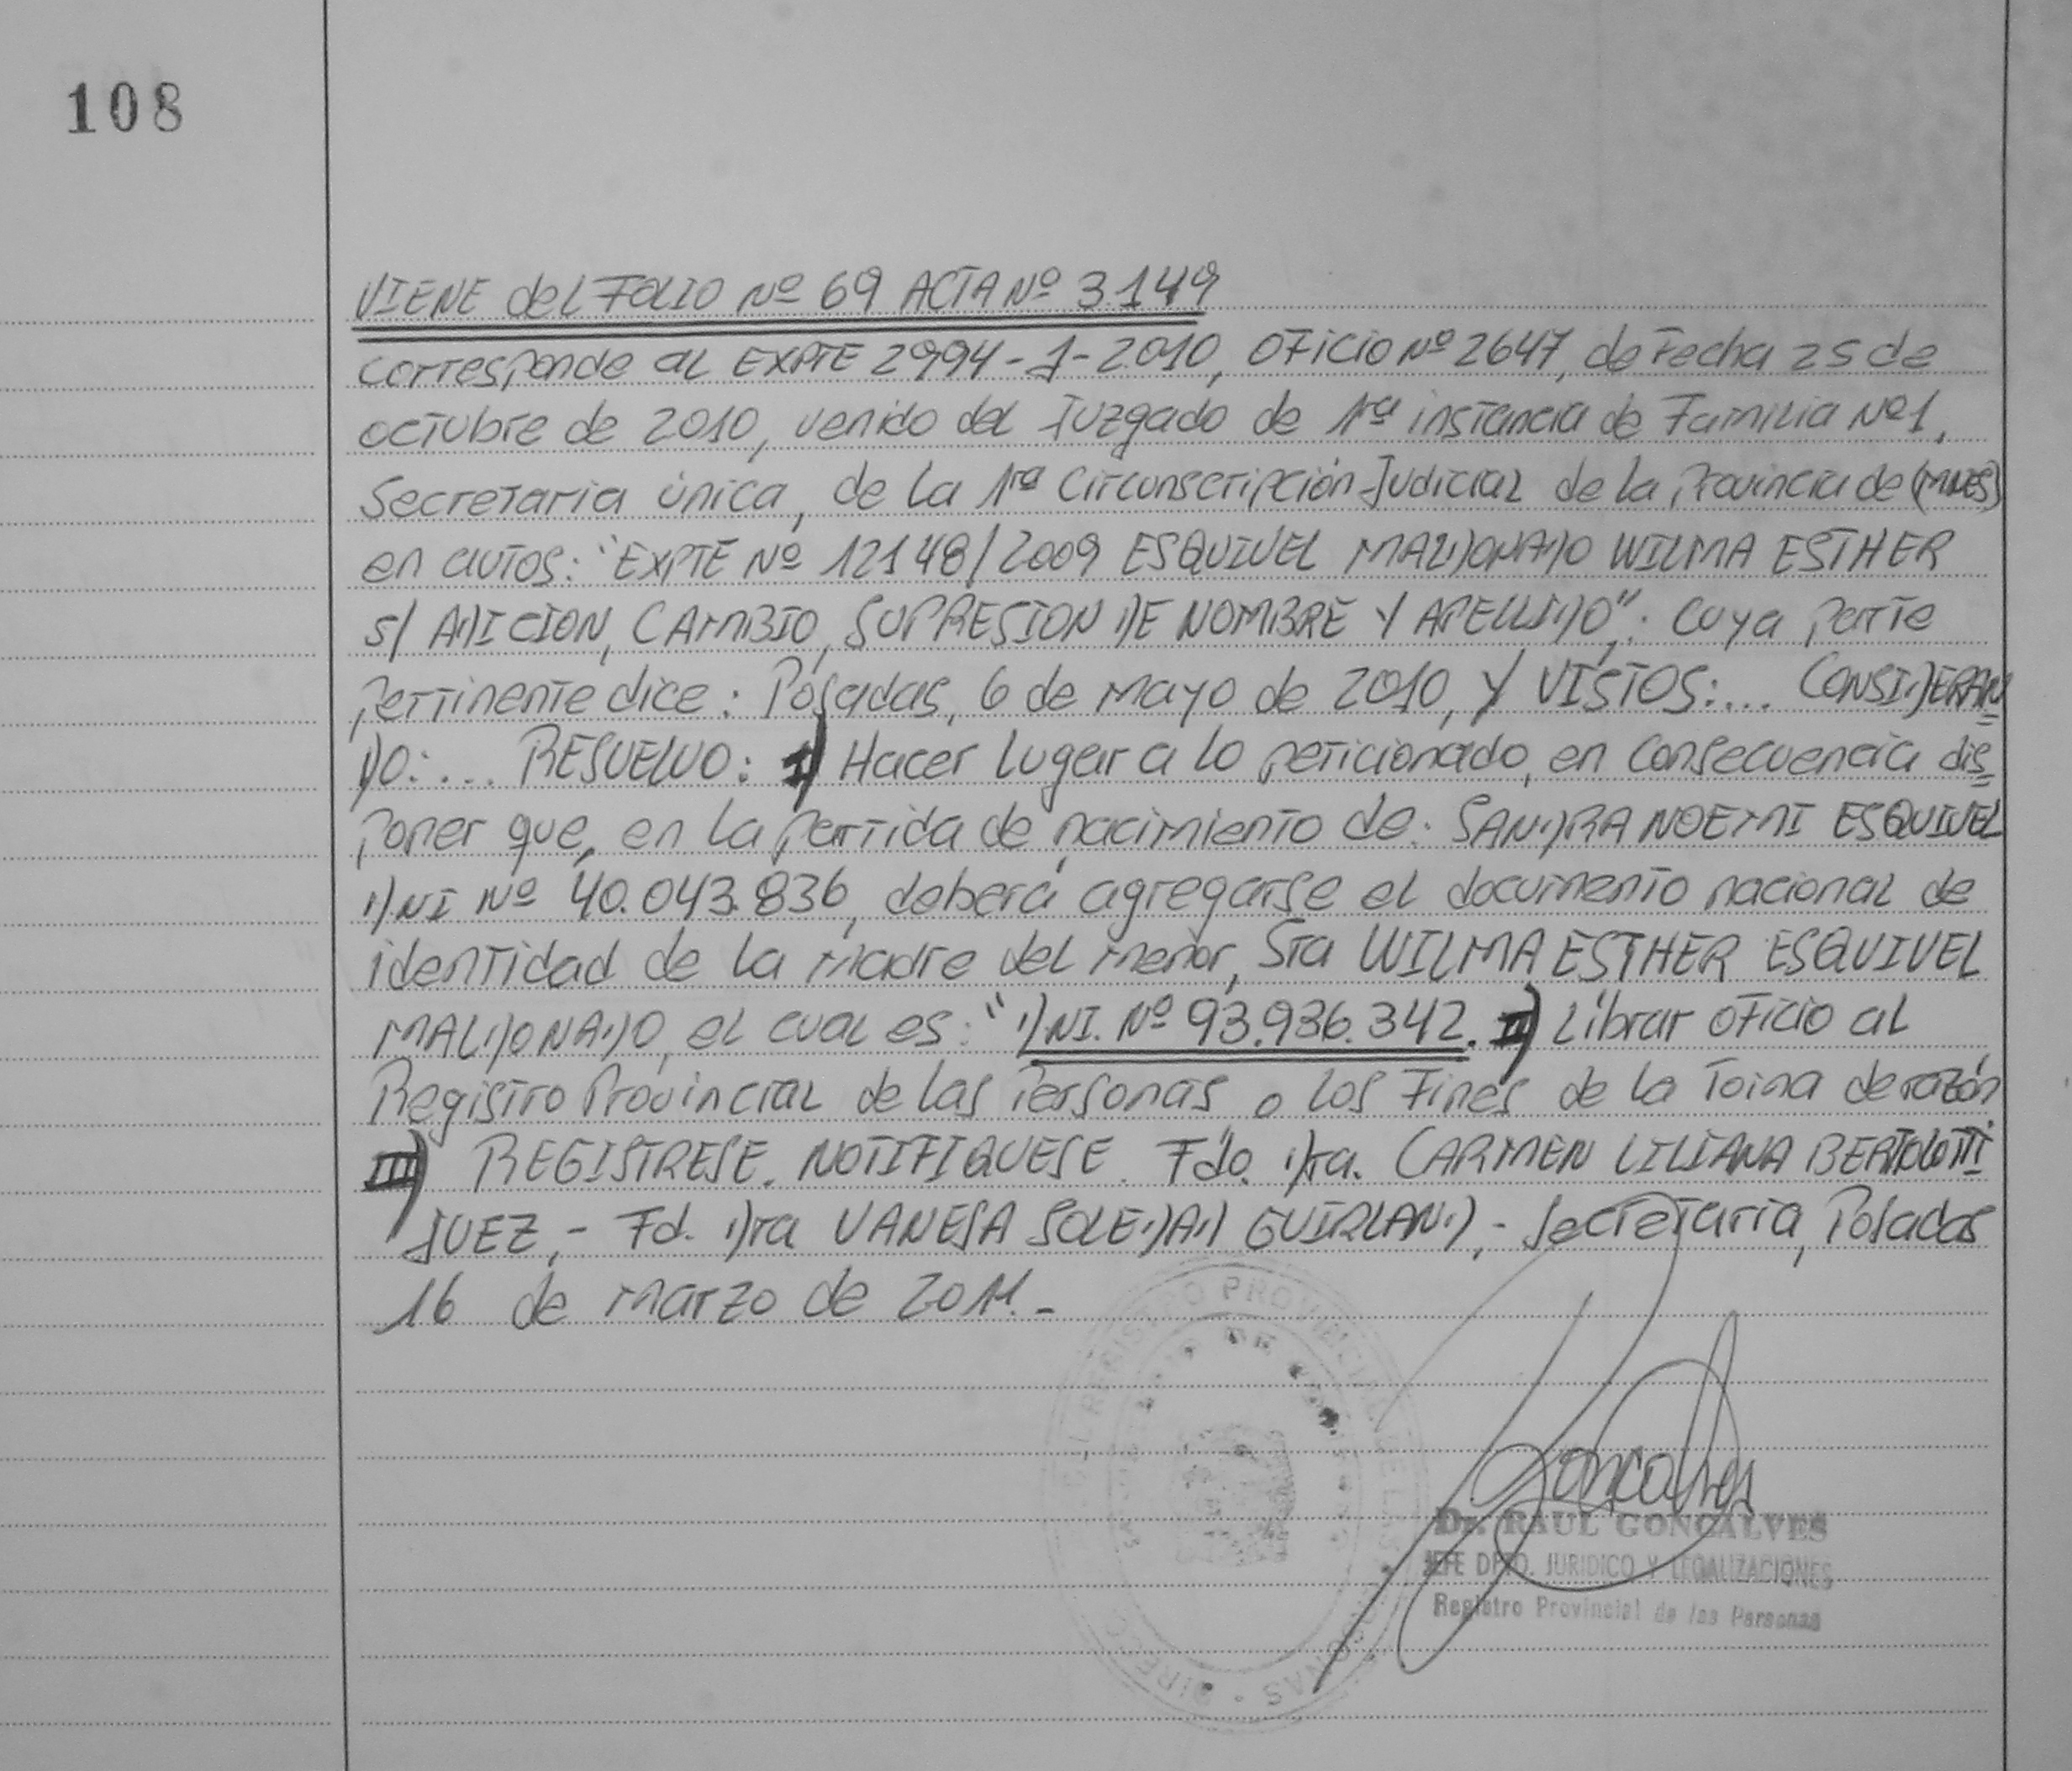 108
VIENE del FOLIO Nº 69 ACTA Nº 3.149
corresponde al EXPTE 2994-J-2010, OFICIO Nº 2647, de Fecha 25 de
octubre de 2010, venido del Juzgado de 1ra instancia de Familia Nº1,
Secretaria única, de la 1ra Circunscripción Judicial de la Provincia de (MNES)
en autos: "EXPTE Nº 12148/2009 ESQUIVEL MALDONADO WILMA ESTHER
s/ ADICION, CAMBIO, SUPRESION DE NOMBRE Y APELLIDO"; cuya parte
pertinente dice: Posadas, 6 de mayo de 2010, Y VISTOS:... CONSIDERAN
DO:... RESUELVO: I) Hacer lugar a lo peticionado, en consecuencia dis
poner que, en la partida de nacimiento de: SANDRA NOEMI ESQUIVEL
DNI Nº 40.043.836, deberá agregarse el documento nacional de
identidad de la madre del menor, Sra WILMA ESTHER ESQUIVEL
MALDONADO, el cual es: "DNI. Nº 93.936.342. II) Librar oficio al
Registro Provincial de las Personas a los Fines de la Toma de razón
III) REGISTRESE. NOTIFIQUESE. Fdo. Dra. CARMEN LILIANA BERTOLOTTI
JUEZ,- Fd. Dra VANESA SOLEDAD GUIRLAND,- Secretaria, Posadas
16 de marzo de 2011.-
REGISTRO PROVINCIAL DE LAS PERSONAS
Goncalves
Dr. RAUL GONCALVES
JEFE DPTO. JURIDICO Y LEGALIZACIONES
Registro Provincial de las Personas